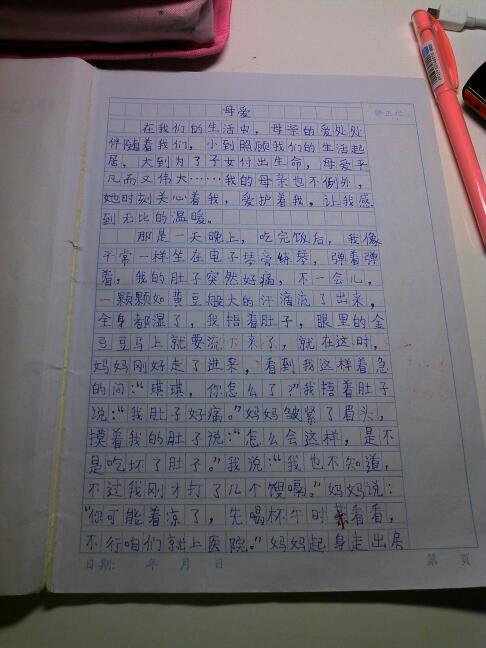 母爱
订正栏
在我们的生活中，母亲的爱处处
伴随着我们，小到照顾我们的生活起
居，大到为了子女付出生命，母爱平
凡而又伟大……我的母亲也不例外，
她时刻关心着我，爱护着我，让我感
到无比的温暖。
那是一天晚上，吃完饭后，我像
平常一样坐在电子琴旁练琴，弹着弹
着，我的肚子突然好痛，不一会儿，
一颗颗如黄豆般大的汗滴流了出来，
全身都湿了，我捂着肚子，眼里的金
豆豆马上就要流下来了，就在这时，
妈妈刚好走了进来，看到我这样着急
的问：“琪琪，你怎么了？”我捂着肚子
说：“我肚子好痛。”妈妈皱紧了眉头，
摸着我的肚子说：“怎么会这样，是不
是吃坏了肚子。”我说：“我也不知道，
不过我刚才打了几个馊嗝。”妈妈说：
“你可能着凉了，先喝杯午时茶看看，
不行咱们就上医院。”妈妈起身走出房
日期： 年 月 日 第 页